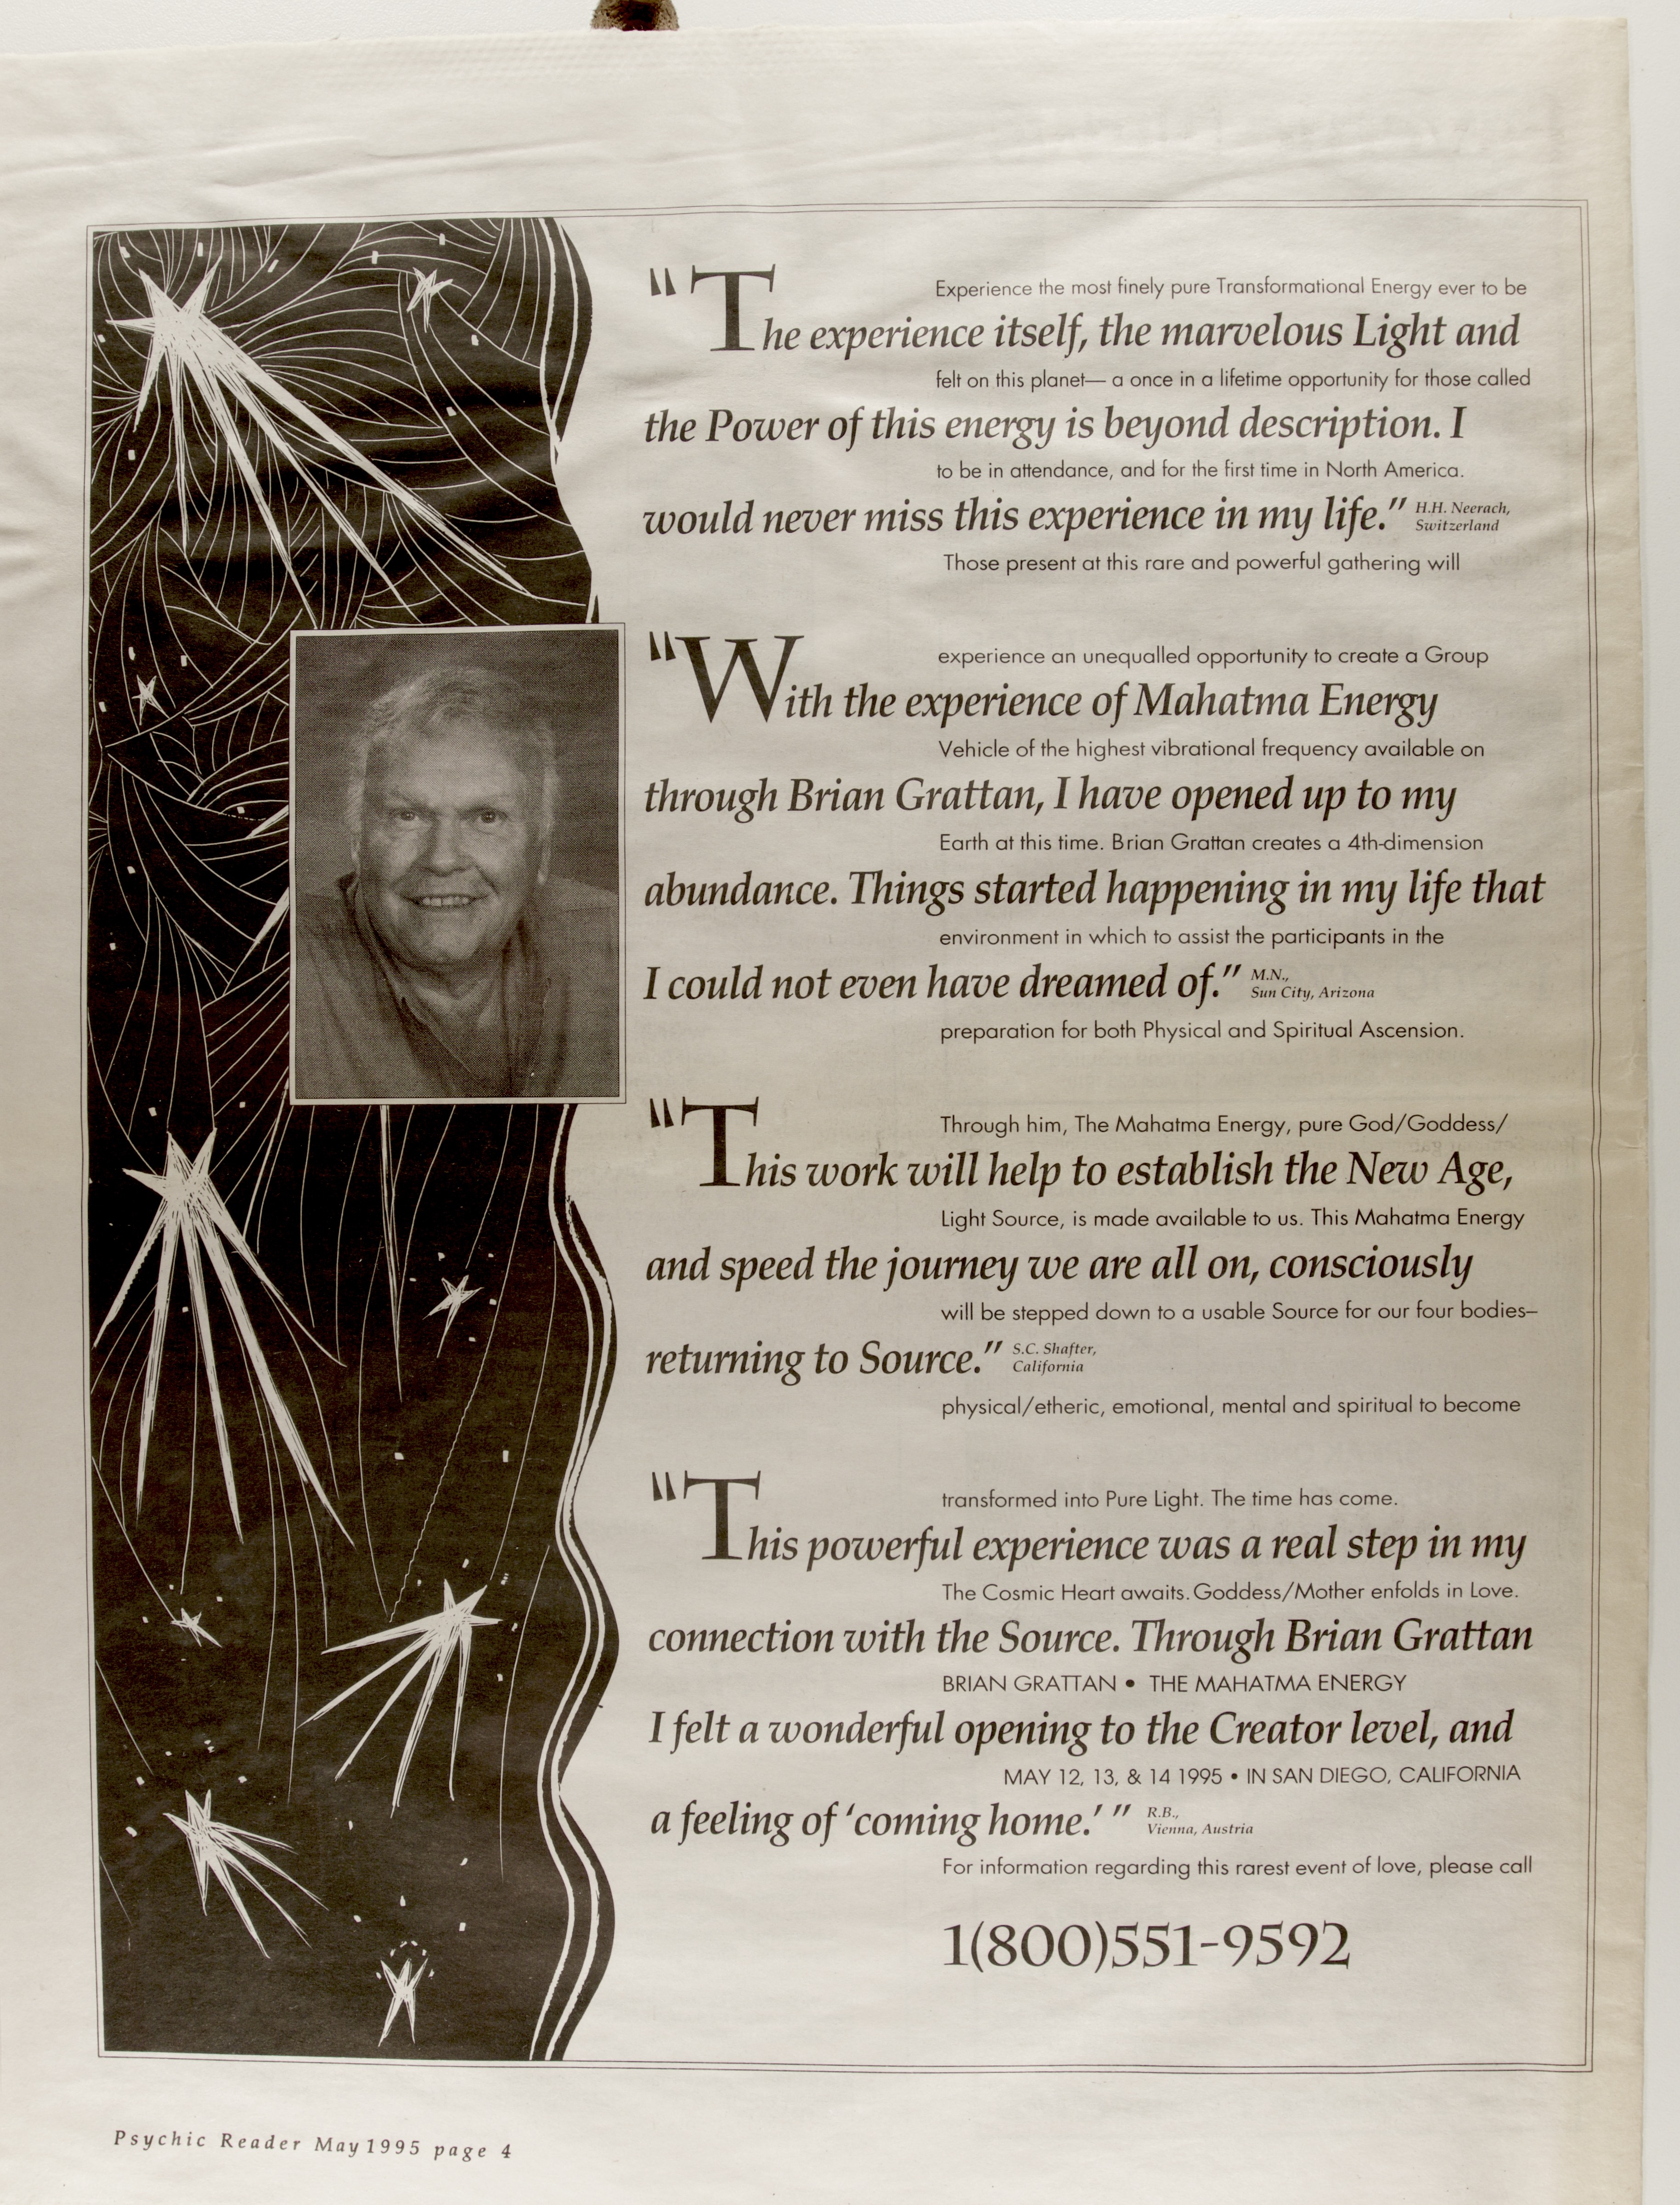 Experience the most finely pure Transformational Energy ever to be
"The experience itself, the marvelous Light and
felt on this planet— a once in a lifetime opportunity for those called
the Power of this energy is beyond description. I
to be in attendance, and for the first time in North America.
would never miss this experience in my life." H.H. Neerach,
Switzerland
Those present at this rare and powerful gathering will
experience an unequalled opportunity to create a Group
"With the experience of Mahatma Energy
Vehicle of the highest vibrational frequency available on
through Brian Grattan, I have opened up to my
Earth at this time. Brian Grattan creates a 4th-dimension
abundance. Things started happening in my life that
environment in which to assist the participants in the
I could not even have dreamed of." M.N.,
Sun City, Arizona
preparation for both Physical and Spiritual Ascension.
Through him, The Mahatma Energy, pure God/Goddess/
"This work will help to establish the New Age,
Light Source, is made available to us. This Mahatma Energy
and speed the journey we are all on, consciously
will be stepped down to a usable Source for our four bodies–
returning to Source." S.C. Shafter,
California
physical/etheric, emotional, mental and spiritual to become
transformed into Pure Light. The time has come.
"This powerful experience was a real step in my
The Cosmic Heart awaits. Goddess/Mother enfolds in Love.
connection with the Source. Through Brian Grattan
BRIAN GRATTAN • THE MAHATMA ENERGY
I felt a wonderful opening to the Creator level, and
MAY 12, 13, & 14 1995 • IN SAN DIEGO, CALIFORNIA
a feeling of 'coming home.' " R.B.,
Vienna, Austria
For information regarding this rarest event of love, please call
1(800)551-9592
Psychic Reader May 1995 page 4